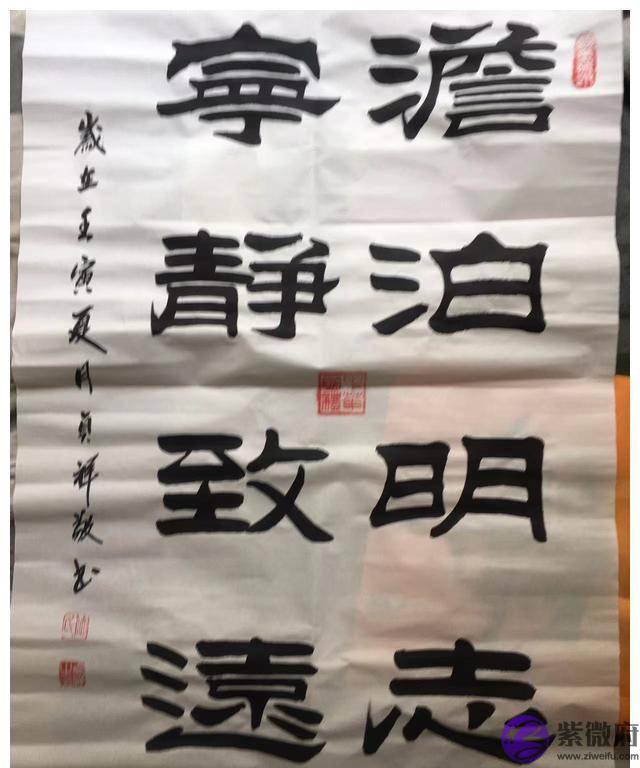 澹泊明志
寧靜致遠
歲在壬寅夏月貞祥敬書
紫微府
www.ziweifu.com